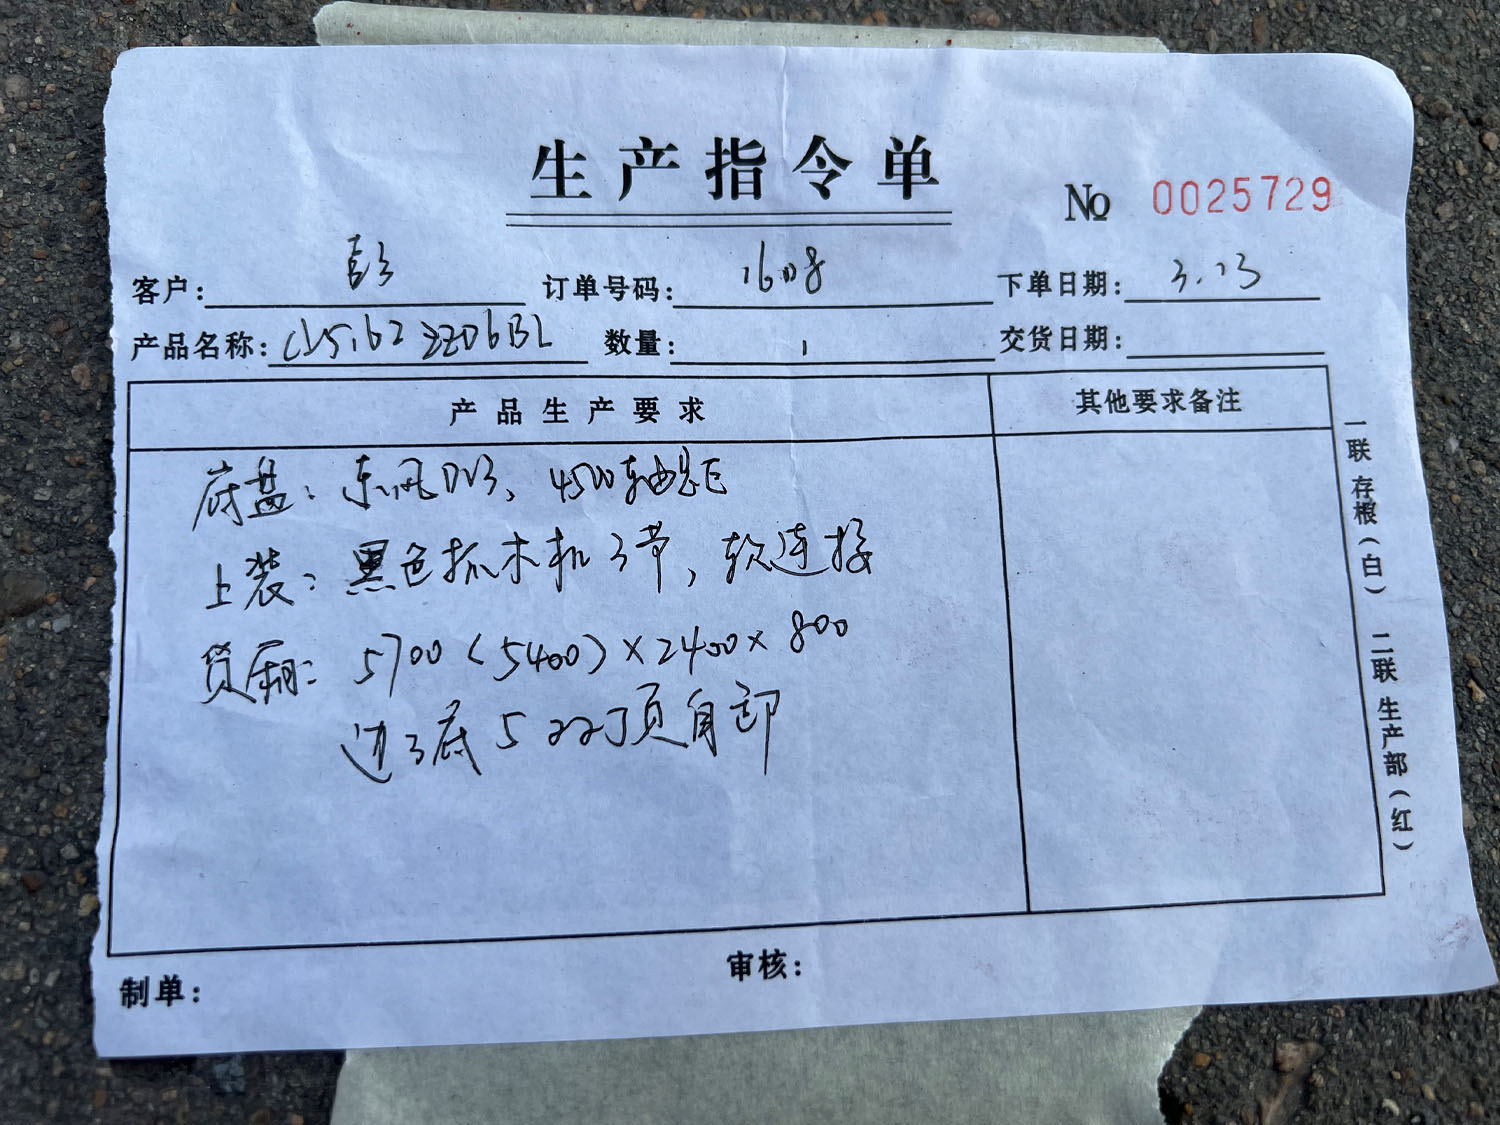 生产指令单
No 0025729
客户: 彭 订单号码: 1608 下单日期: 3.23
产品名称: 数量: 1 交货日期:
产品生产要求 其他要求备注
底盘: 东风D13, 4500轴距
上装: 黑色抓木机3节, 软连接
货厢: 5700(5400)×2400×800
边3底5 22顶自卸
一联存根(白) 二联生产部(红)
制单: 审核: